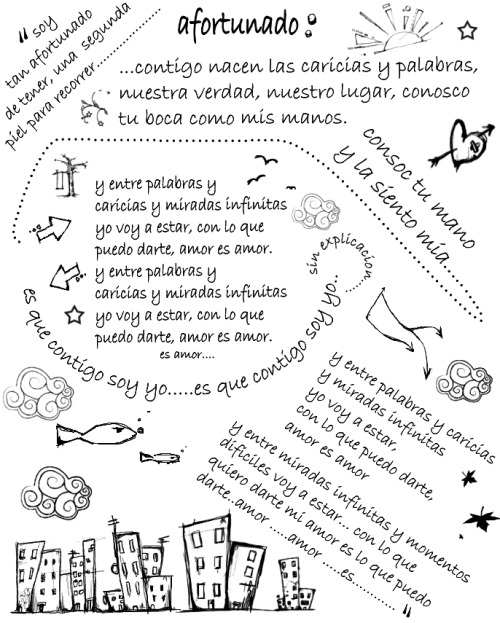 afortunado :
" soy
tan afortunado
de tener, una segunda
piel para recorrer..........
...contigo nacen las caricias y palabras,
nuestra verdad, nuestro lugar, conosco
tu boca como mis manos.
consoc tu mano
y la siento mia..
y entre palabras y
caricias y miradas infinitas
yo voy a estar, con lo que
puedo darte, amor es amor.
y entre palabras y
caricias y miradas infinitas
yo voy a estar, con lo que
puedo darte, amor es amor.
es amor....
es que contigo soy yo.....es que contigo soy yo..
sin explicacion......
y entre palabras y caricias
y miradas infinitas
yo voy a estar,
con lo que puedo darte,
amor es amor
y entre miradas infinitas y momentos
dificiles voy a estar... con lo que
quiero darte mi amor es lo que puedo
darte..amor .....amor ....es............ "